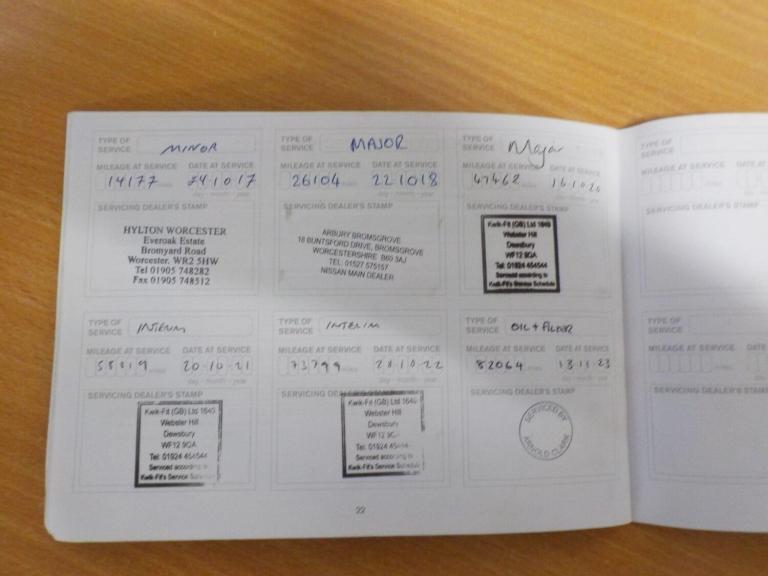 TYPE OF SERVICE MINOR
MILEAGE AT SERVICE DATE AT SERVICE
14177 miles 241017
day - month - year
SERVICING DEALER'S STAMP
HYLTON WORCESTER
Everoak Estate
Bromyard Road
Worcester. WR2 5HW
Tel 01905 748282
Fax 01905 748512
TYPE OF SERVICE MAJOR
MILEAGE AT SERVICE DATE AT SERVICE
26104 miles 221018
day - month - year
SERVICING DEALER'S STAMP
ARBURY BROMSGROVE
18 BUNTSFORD DRIVE, BROMSGROVE
WORCESTERSHIRE B60 3AJ
TEL: 01527 575157
NISSAN MAIN DEALER
TYPE OF SERVICE Major
MILEAGE AT SERVICE DATE AT SERVICE
47462 miles 161020
day - month - year
SERVICING DEALER'S STAMP
Kwik-Fit (GB) Ltd 1640
Webster Hill
Dewsbury
WF12 9QA
Tel: 01924 454544
Serviced according to
Kwik-Fit's Service Schedule
TYPE OF SERVICE INTERIM
MILEAGE AT SERVICE DATE AT SERVICE
58819 miles 20-10-21
day - month - year
SERVICING DEALER'S STAMP
Kwik-Fit (GB) Ltd 1640
Webster Hill
Dewsbury
WF12 9QA
Tel: 01924 454544
Serviced according to
Kwik-Fit's Service
TYPE OF SERVICE INTERIM
MILEAGE AT SERVICE DATE AT SERVICE
73799 miles 20-10-22
day - month - year
SERVICING DEALER'S STAMP
Kwik-Fit (GB) Ltd 1640
Webster Hill
Dewsbury
WF12
Tel: 01924
Serviced according to
Kwik-Fit's Service Schedule
TYPE OF SERVICE OIL + FILTER
MILEAGE AT SERVICE DATE AT SERVICE
82064 miles 13 11 23
day - month - year
SERVICING DEALER'S STAMP
SERVICED BY
ARNOLD CLARK
22
TYPE OF SERVICE
MILEAGE AT SERVICE
miles
SERVICING DEALER'S STAMP
TYPE OF SERVICE
MILEAGE AT SERVICE
miles
SERVICING DEALER'S STAMP